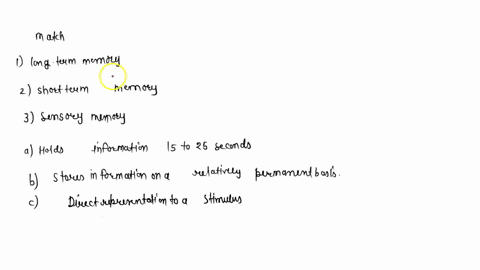 match
1) long term memory
2) short term memory
3) Sensory memory
a) Holds information 15 to 25 seconds
b) Stores information on a relatively permanent basis.
c) Direct representation to a stimulus